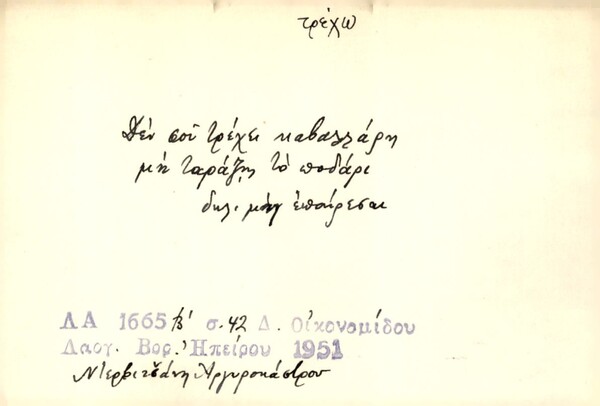 τρέχω
Δέν σοῦ τρέχει καβαλλάρη
μή ταράζῃς τό ποδάρι
δηλ. μήν ἐπαίρεσαι
ΛΑ 1665 Β' σ. 42 Δ. Οἰκονομίδου
Λαογ. Βορ. Ἠπείρου 1951
Ντερβιτσάνη Ἀργυροκάστρου